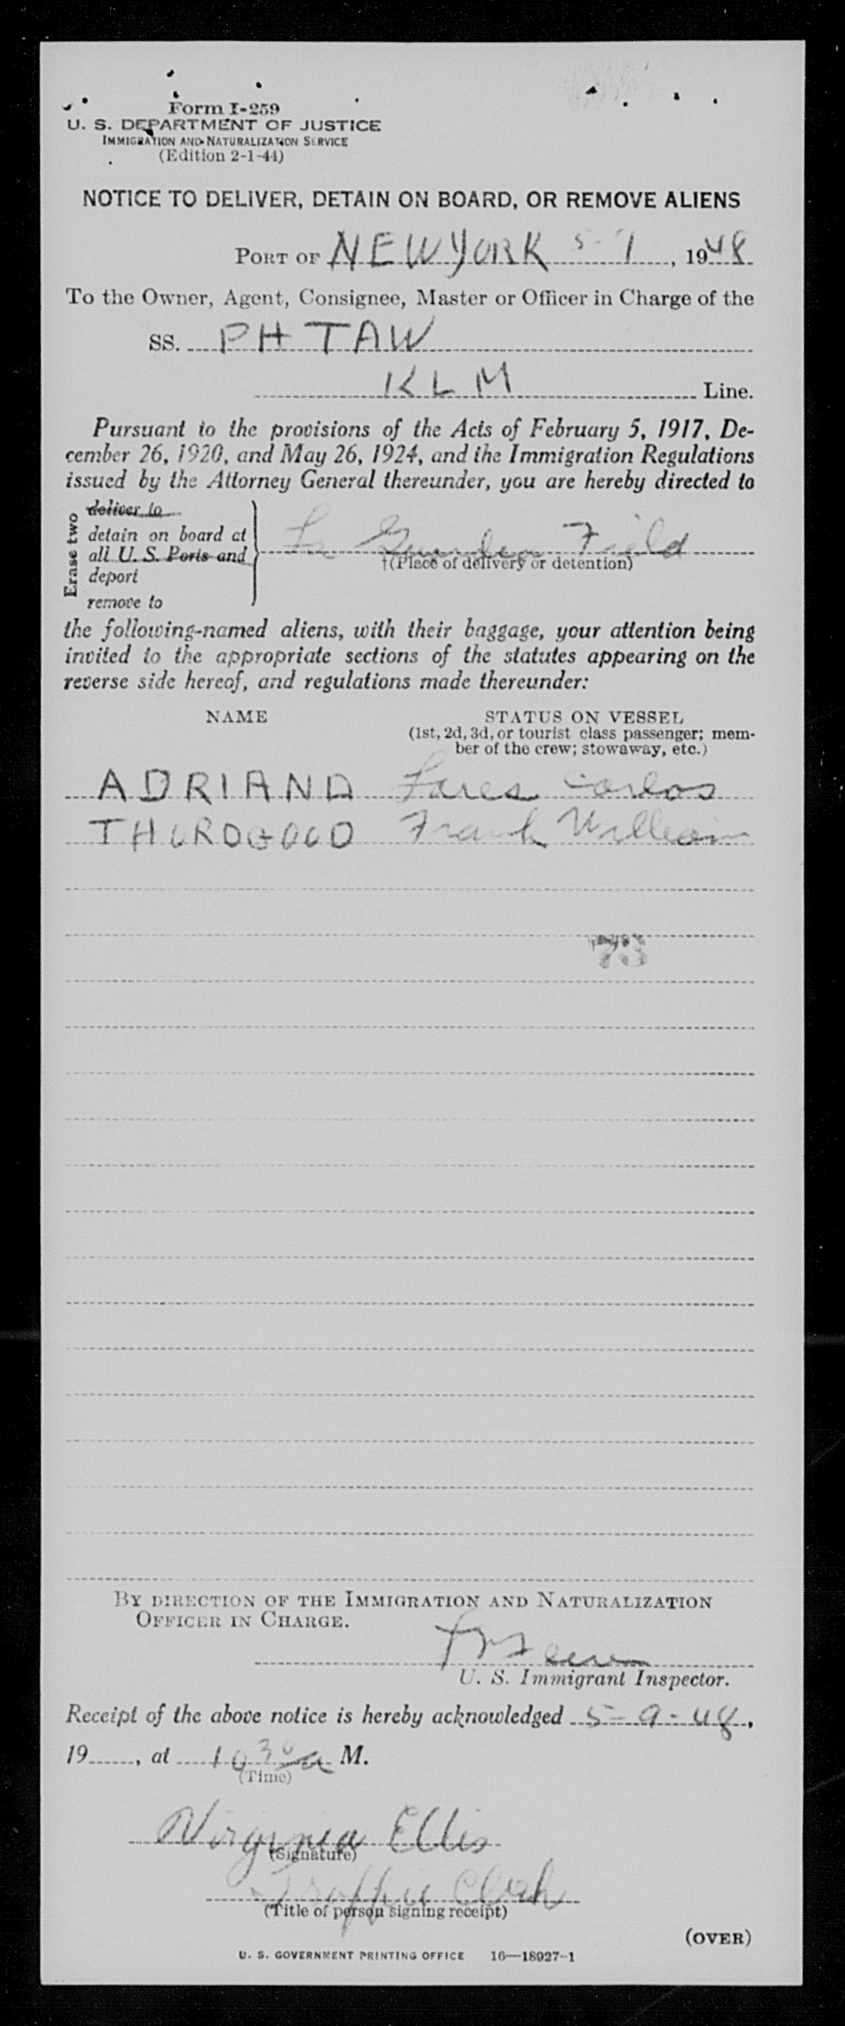 Form I-259
U. S. DEPARTMENT OF JUSTICE
IMMIGRATION AND NATURALIZATION SERVICE
(Edition 2-1-44)
NOTICE TO DELIVER, DETAIN ON BOARD, OR REMOVE ALIENS
PORT OF NEW YORK 5-9, 1948
To the Owner, Agent, Consignee, Master or Officer in Charge of the
SS. PH TAW
KLM Line.
Pursuant to the provisions of the Acts of February 5, 1917, De-
cember 26, 1920, and May 26, 1924, and the Immigration Regulations
issued by the Attorney General thereunder, you are hereby directed to
Erase two
deliver to
detain on board at
all U. S. Ports and
deport
remove to
La Guardia Field
†(Place of delivery or detention)
the following-named aliens, with their baggage, your attention being
invited to the appropriate sections of the statutes appearing on the
reverse side hereof, and regulations made thereunder:
NAME STATUS ON VESSEL
(1st, 2d, 3d, or tourist class passenger; mem-
ber of the crew; stowaway, etc.)
ADRIANA Carlos
THUROGOOD Frank William
73
BY DIRECTION OF THE IMMIGRATION AND NATURALIZATION
OFFICER IN CHARGE.
U. S. Immigrant Inspector.
Receipt of the above notice is hereby acknowledged 5-9-48,
19, at 10 30 a M.
(Time)
Virginia Ellis
(Signature)
Traffic Clerk
(Title of person signing receipt)
(OVER)
U. S. GOVERNMENT PRINTING OFFICE 16—18927-1